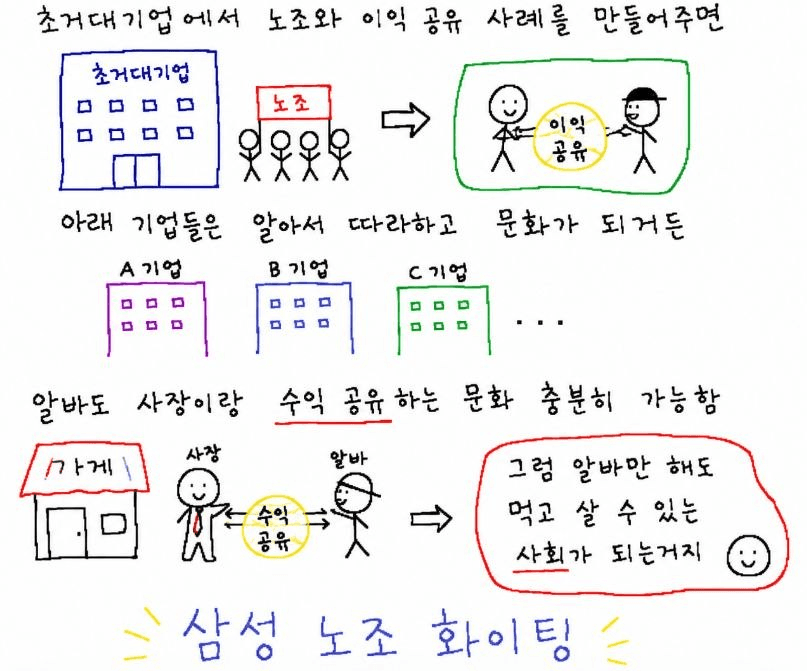 초거대기업에서 노조와 이익 공유 사례를 만들어주면
초거대기업
노조
이익
공유
아래 기업들은 알아서 따라하고 문화가 되거든
A 기업
B 기업
C 기업
...
알바도 사장이랑 수익 공유하는 문화 충분히 가능함
가게
사장
알바
수익
공유
그럼 알바만 해도
먹고 살 수 있는
사회가 되는거지
삼성 노조 화이팅